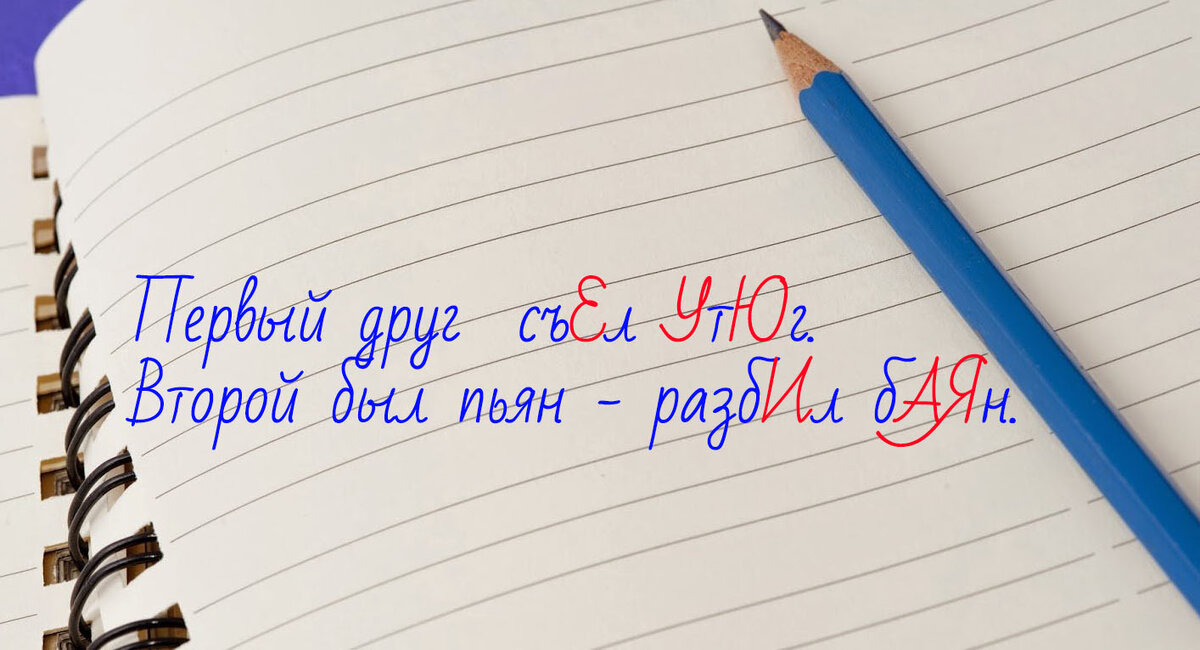 Первый друг съЕл УтЮг.
Второй был пьян - разбИл бАЯн.